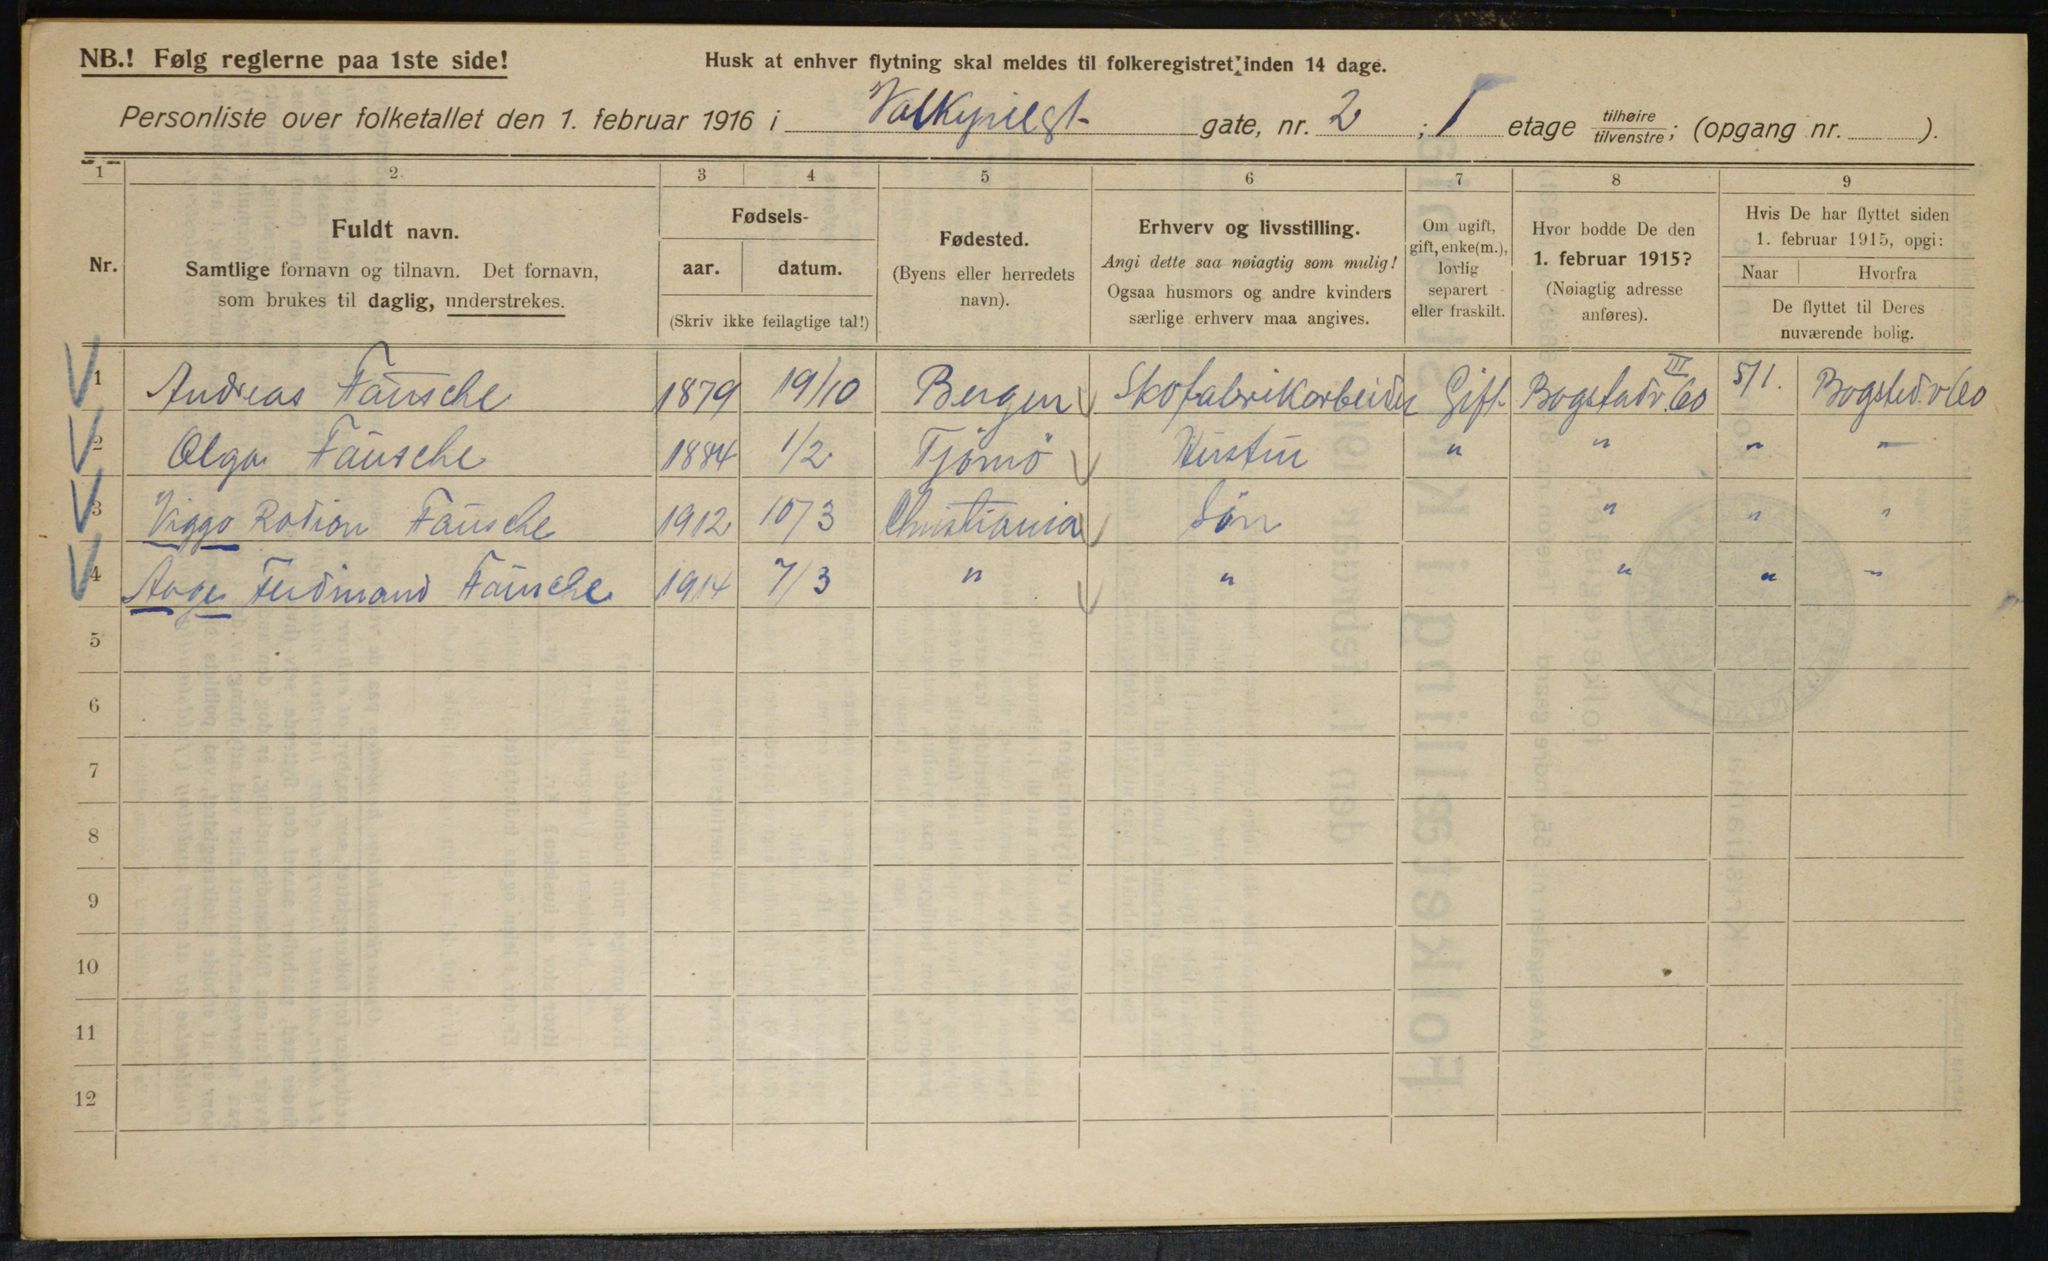 NB.! Følg reglerne paa 1ste side!
Husk at enhver flytning skal meldes til folkeregistret inden 14 dage.
Personliste over folketallet den 1. februar 1916 i Valkyriegt gate, nr. 2; I etage tilhøire tilvenstre; (opgang nr. ).
1 2 3 4 5 6 7 8 9
Nr.
Fuldt navn.
Samtlige fornavn og tilnavn. Det fornavn,
som brukes til daglig, understrekes.
Fødsels-
aar. datum.
(Skriv ikke feilagtige tal!)
Fødested.
(Byens eller herredets
navn).
Erhverv og livsstilling.
Angi dette saa nøiagtig som mulig!
Ogsaa husmors og andre kvinders
særlige erhverv maa angives.
Om ugift,
gift, enke(m.),
lovlig
separert
eller fraskilt.
Hvor bodde De den
1. februar 1915?
(Nøiagtig adresse
anføres).
Hvis De har flyttet siden
1. februar 1915, opgi:
Naar Hvorfra
De flyttet til Deres
nuværende bolig.
1 Andreas Fausche 1879 19/10 Bergen Skofabrikarbeider Gift Bogstadv. 60 III 5/1. Bogsted.v 60
2 Olga Fausche 1884 1/2 Tjömö Hustru " " " "
3 Viggo Rodion Fausche 1912 10/3 Christiania Sön " " "
4 Aage Ferdinand Fausche 1914 7/3 " " " " "
5
6
7
8
9
10
11
12